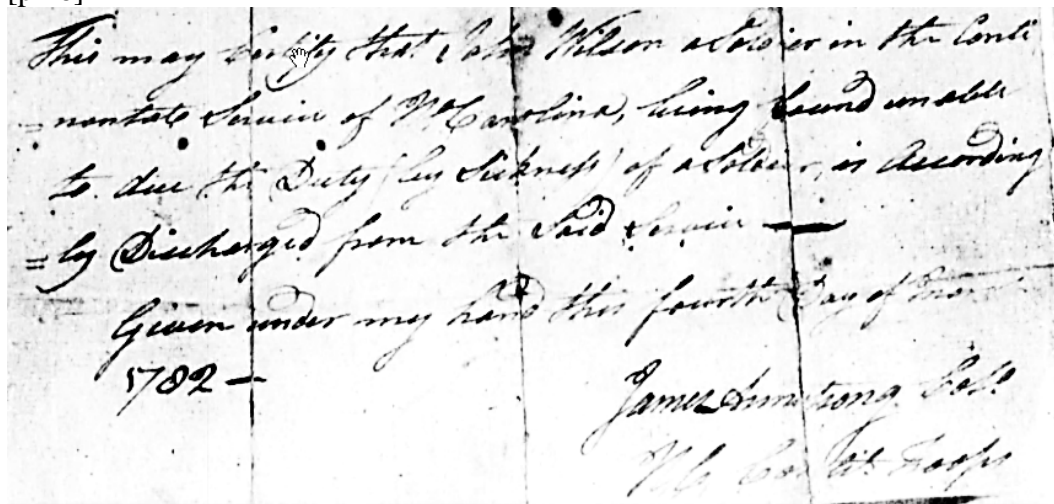 This may Certify that John Wilson a Soldier in the Conti
=nentale Service of No Carolina, being found unable
to due the Duty (by Sickness) of a Soldier, is According
=ly Discharged from the Said Service —
Given under my hand this fourth Day of
1782 —
James Armstrong Colo
No Cont Troops